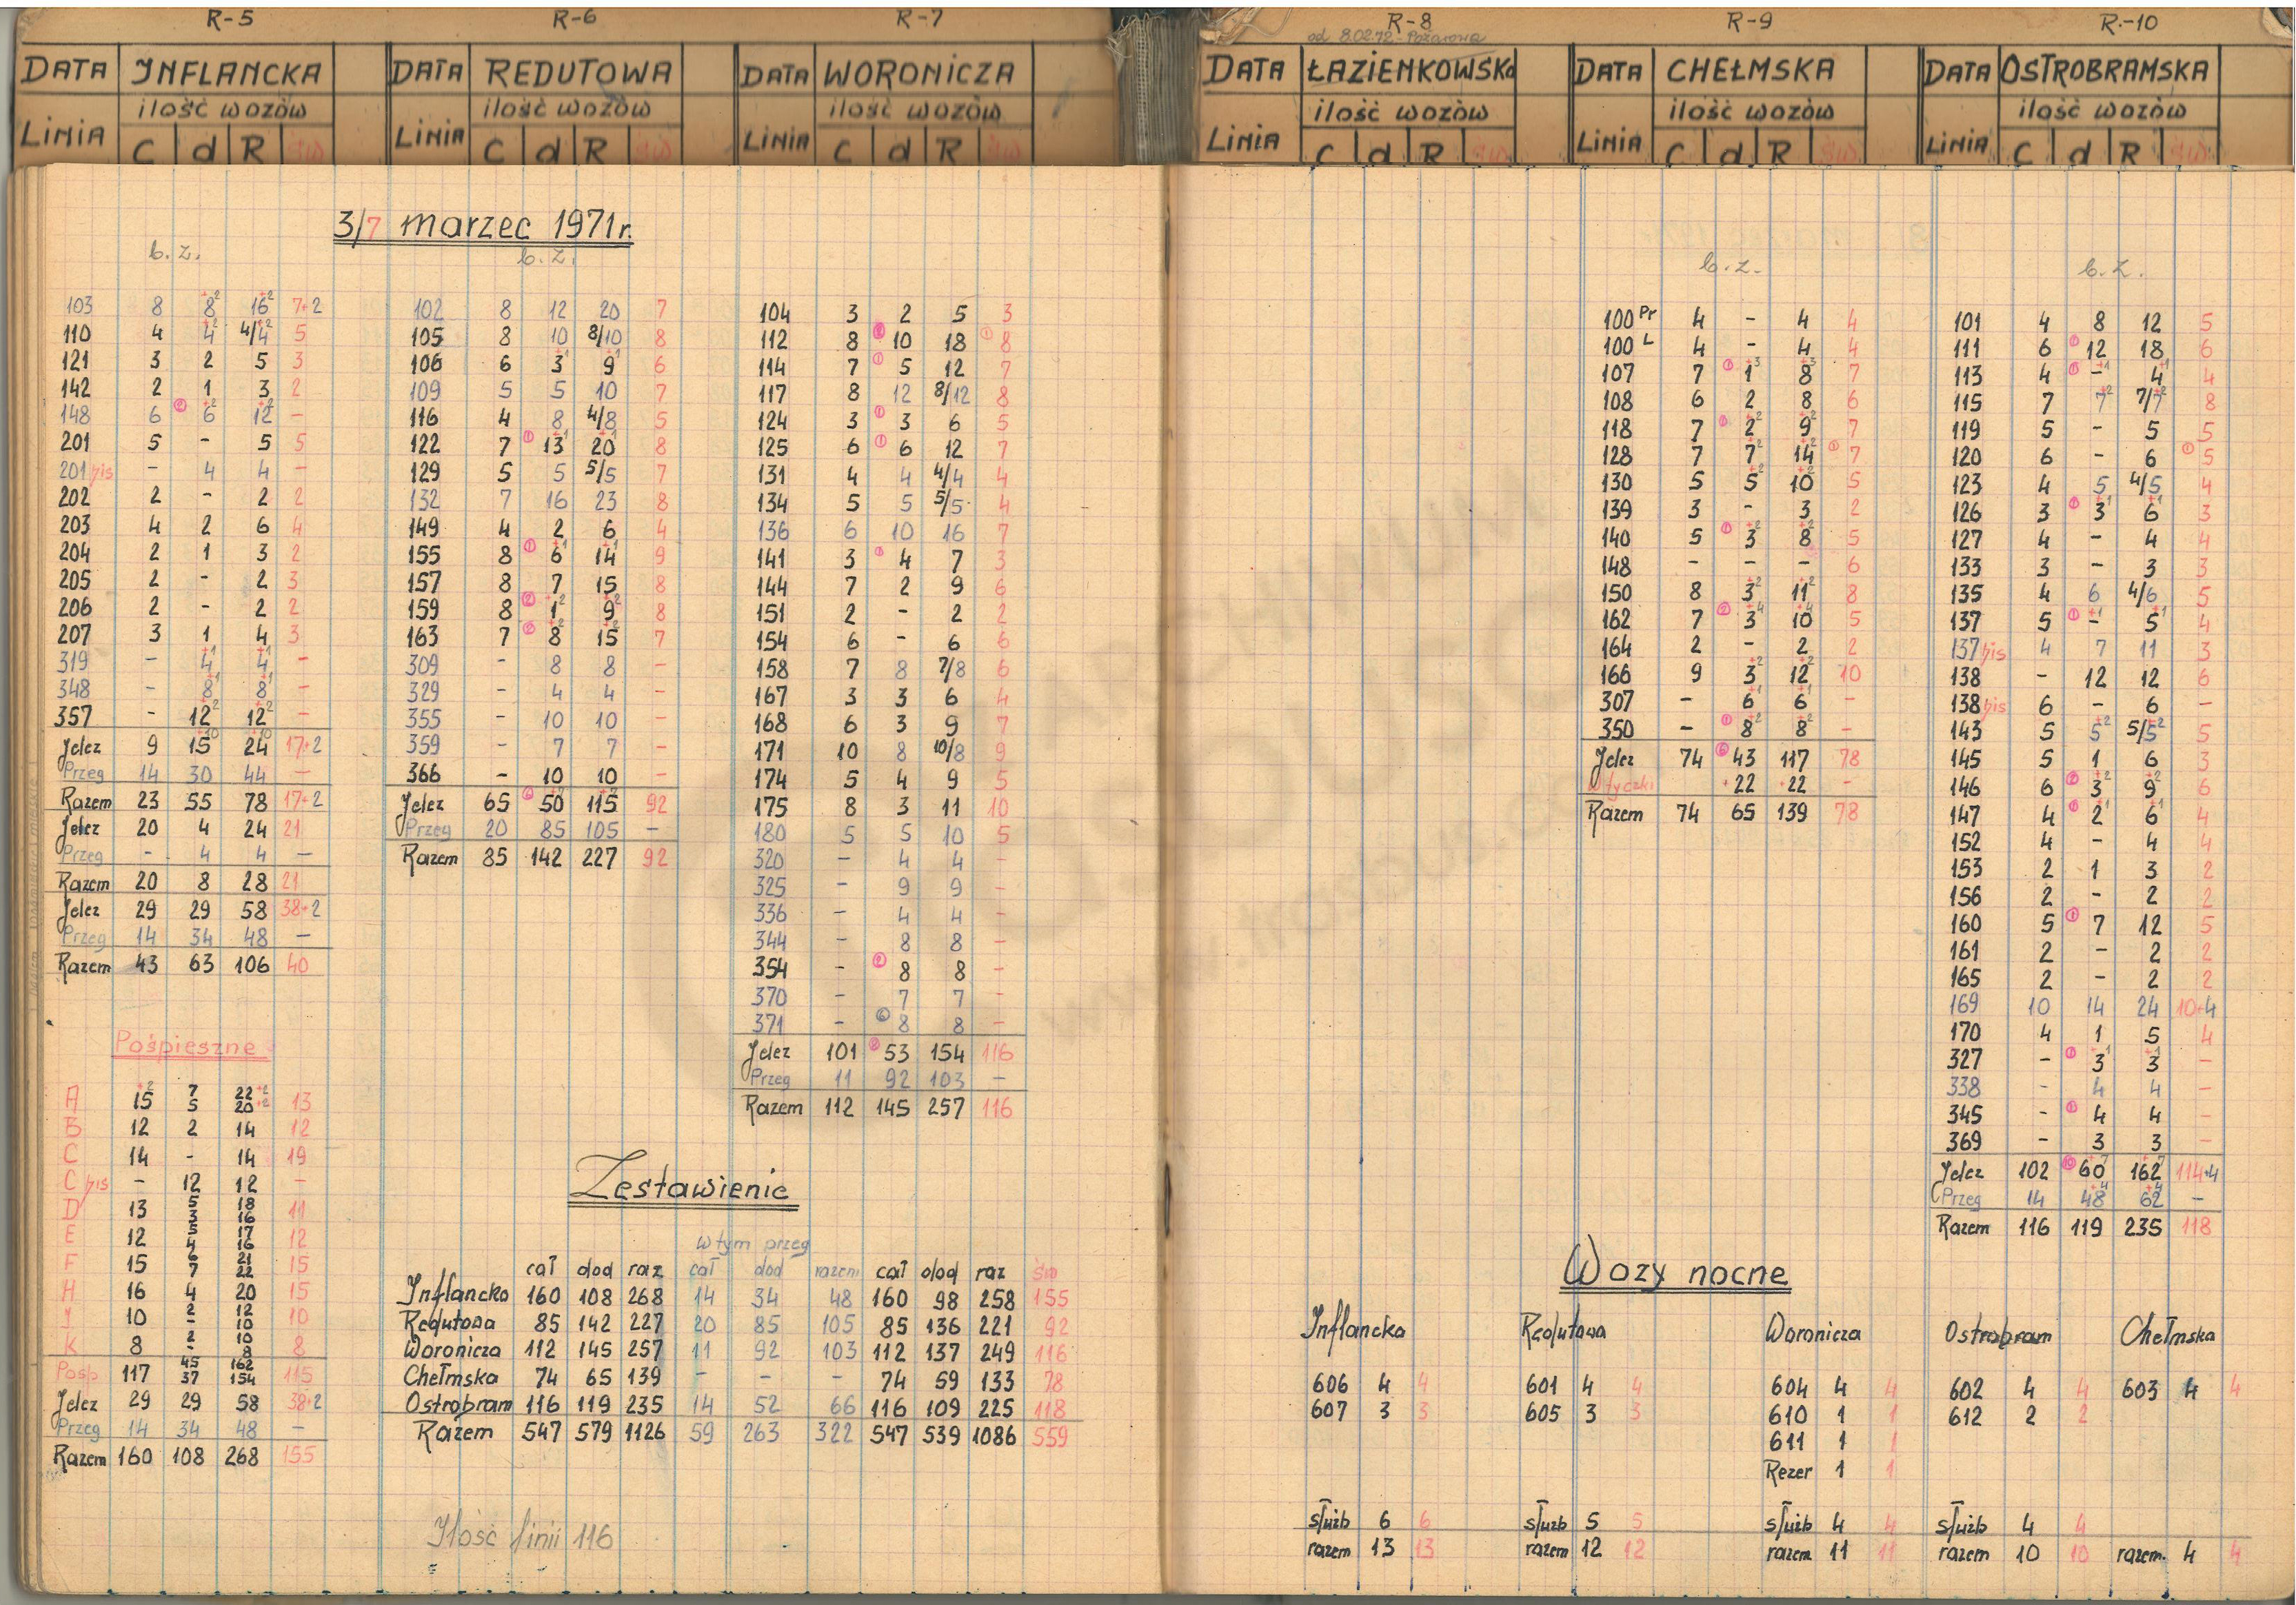 R-5
DATA INFLANCKA
ilość wozów
LINIA C d R św
R-6
DATA REDUTOWA
ilość wozów
LINIA C d R św
R-7
DATA WORONICZA
ilość wozów
LINIA C d R św
R-8
od 8.02.72 - Pożarowa
DATA ŁAZIENKOWSKA
ilość wozów
LINIA C d R św
R-9
DATA CHEŁMSKA
ilość wozów
LINIA C d R św
R-10
DATA OSTROBRAMSKA
ilość wozów
LINIA C d R św
3/7 marzec 1971r.
b. z.
103 8 8+2 16+2 7+2
110 4 4+2 4/4+2 5
121 3 2 5 3
142 2 1 3 2
148 6 ② 6+2 12+2 -
201 5 - 5 5
201 bis - 4 4 -
202 2 - 2 2
203 4 2 6 4
204 2 1 3 2
205 2 - 2 3
206 2 - 2 2
207 3 1 4 3
319 - 4+1 4+1 -
348 - 8+1 8+1 -
357 - 12+2 12+2 -
Jelcz 9 15+10 24+10 17+2
Przeg 14 30 44 -
Razem 23 55 78 17+2
Jelcz 20 4 24 21
Przeg - 4 4 -
Razem 20 8 28 21
Jelcz 29 29 58 38+2
Przeg 14 34 48 -
Razem 43 63 106 40
Pośpieszne
A 15+2 7 5 22+2 20+2 13
B 12 2 14 12
C 14 - 14 19
C bis - 12 12 -
D 13 5 3 18 16 11
E 12 5 4 17 16 12
F 15 6 7 21 22 15
H 16 4 20 15
J 10 2 - 12 10 10
K 8 2 - 10 8 8
Pośp 117 45 37 162 154 115
Jelcz 29 29 58 38+2
Przeg 14 34 48 -
Razem 160 108 268 155
b. z.
102 8 12 20 7
105 8 10 8/10 8
106 6 3+1 9+1 6
109 5 5 10 7
116 4 8 4/8 5
122 7 ① 13+1 20+1 8
129 5 5 5/5 7
132 7 16 23 8
149 4 2 6 4
155 8 ① 6+1 14+1 9
157 8 7 15 8
159 8 ② 1+2 9+2 8
163 7 ② 8+2 15+2 7
309 - 8 8 -
329 - 4 4 -
355 - 10 10 -
359 - 7 7 -
366 - 10 10 -
Jelcz 65 ⑥ 50 115 92
Przeg 20 85 105 -
Razem 85 142 227 92
104 3 2 5 3
112 8 ② 10 18 ① 8
114 7 ① 5 12 7
117 8 12 8/12 8
124 3 ① 3 6 5
125 6 ① 6 12 7
131 4 4 4/4 4
134 5 5 5/5 4
136 6 10 16 7
141 3 ① 4 7 3
144 7 2 9 6
151 2 - 2 2
154 6 - 6 6
158 7 8 7/8 6
167 3 3 6 4
168 6 3 9 7
171 10 8 10/8 9
174 5 4 9 5
175 8 3 11 10
180 5 5 10 5
320 - 4 4 -
325 - 9 9 -
336 - 4 4 -
344 - 8 8 -
354 - ② 8 8 -
370 - 7 7 -
371 - ⑥ 8 8 -
Jelcz 101 53 154 116
Przeg 11 92 103 -
Razem 112 145 257 116
Zestawienie
w tym przeg
cał dod raz cał dod razem cał dod raz św
Inflancka 160 108 268 14 34 48 160 98 258 155
Redutowa 85 142 227 20 85 105 85 136 221 92
Woronicza 112 145 257 11 92 103 112 137 249 116
Chełmska 74 65 139 - - - 74 59 133 78
Ostrobram 116 119 235 14 52 66 116 109 225 118
Razem 547 579 1126 59 263 322 547 539 1086 559
Ilość linii 116
b. z.
100 Pr 4 - 4 4
100 L 4 - 4 4
107 7 ① 1+3 8+3 7
108 6 2 8 6
118 7 ① 2+2 9+2 7
128 7 7+2 14+2 ① 7
130 5 5+2 10+2 5
139 3 - 3 2
140 5 ① 3+2 8+2 5
148 - - - 6
150 8 3+2 11+2 8
162 7 ② 3+4 10+4 5
164 2 - 2 2
166 9 3+2 12+2 10
307 - 6+1 6+1 -
350 - ① 8+2 8+2 -
Jelcz 74 ⑥ 43 117 78
Wtyczki +22 +22 -
Razem 74 65 139 78
b. z.
101 4 8 12 5
111 6 ① 12 18 6
113 4 ① -+1 4+1 4
115 7 7+2 7/7+2 8
119 5 - 5 5
120 6 - 6 ① 5
123 4 5 4/5 4
126 3 ① 3+1 6+1 3
127 4 - 4 4
133 3 - 3 3
135 4 6 4/6 5
137 5 ① -+1 5+1 4
137 bis 4 7 11 3
138 - 12 12 6
138 bis 6 - 6 -
143 5 5+2 5/5+2 5
145 5 1 6 3
146 6 ② 3+2 9+2 6
147 4 ② 2+1 6+1 4
152 4 - 4 4
153 2 1 3 2
156 2 - 2 2
160 5 ① 7 12 5
161 2 - 2 2
165 2 - 2 2
169 10 14 24 10+4
170 4 1 5 4
327 - ① 3+1 3+1 -
338 - 4 4 -
345 - ① 4 4 -
369 - 3 3 -
Jelcz 102 ⑩ 60+7 162+7 114+4
Przeg 14 48+4 62+4 -
Razem 116 119 235 118
Wozy nocne
Inflancka
606 4 4
607 3 3
służb 6 6
razem 13 13
Redutowa
601 4 4
605 3 3
służb 5 5
razem 12 12
Woronicza
604 4 4
610 1 1
611 1 1
Rezer 1 1
służb 4 4
razem 11 11
Ostrobram
602 4 4
612 2 2
służb 4 4
razem 10 10
Chełmska
603 4 4
razem. 4 4